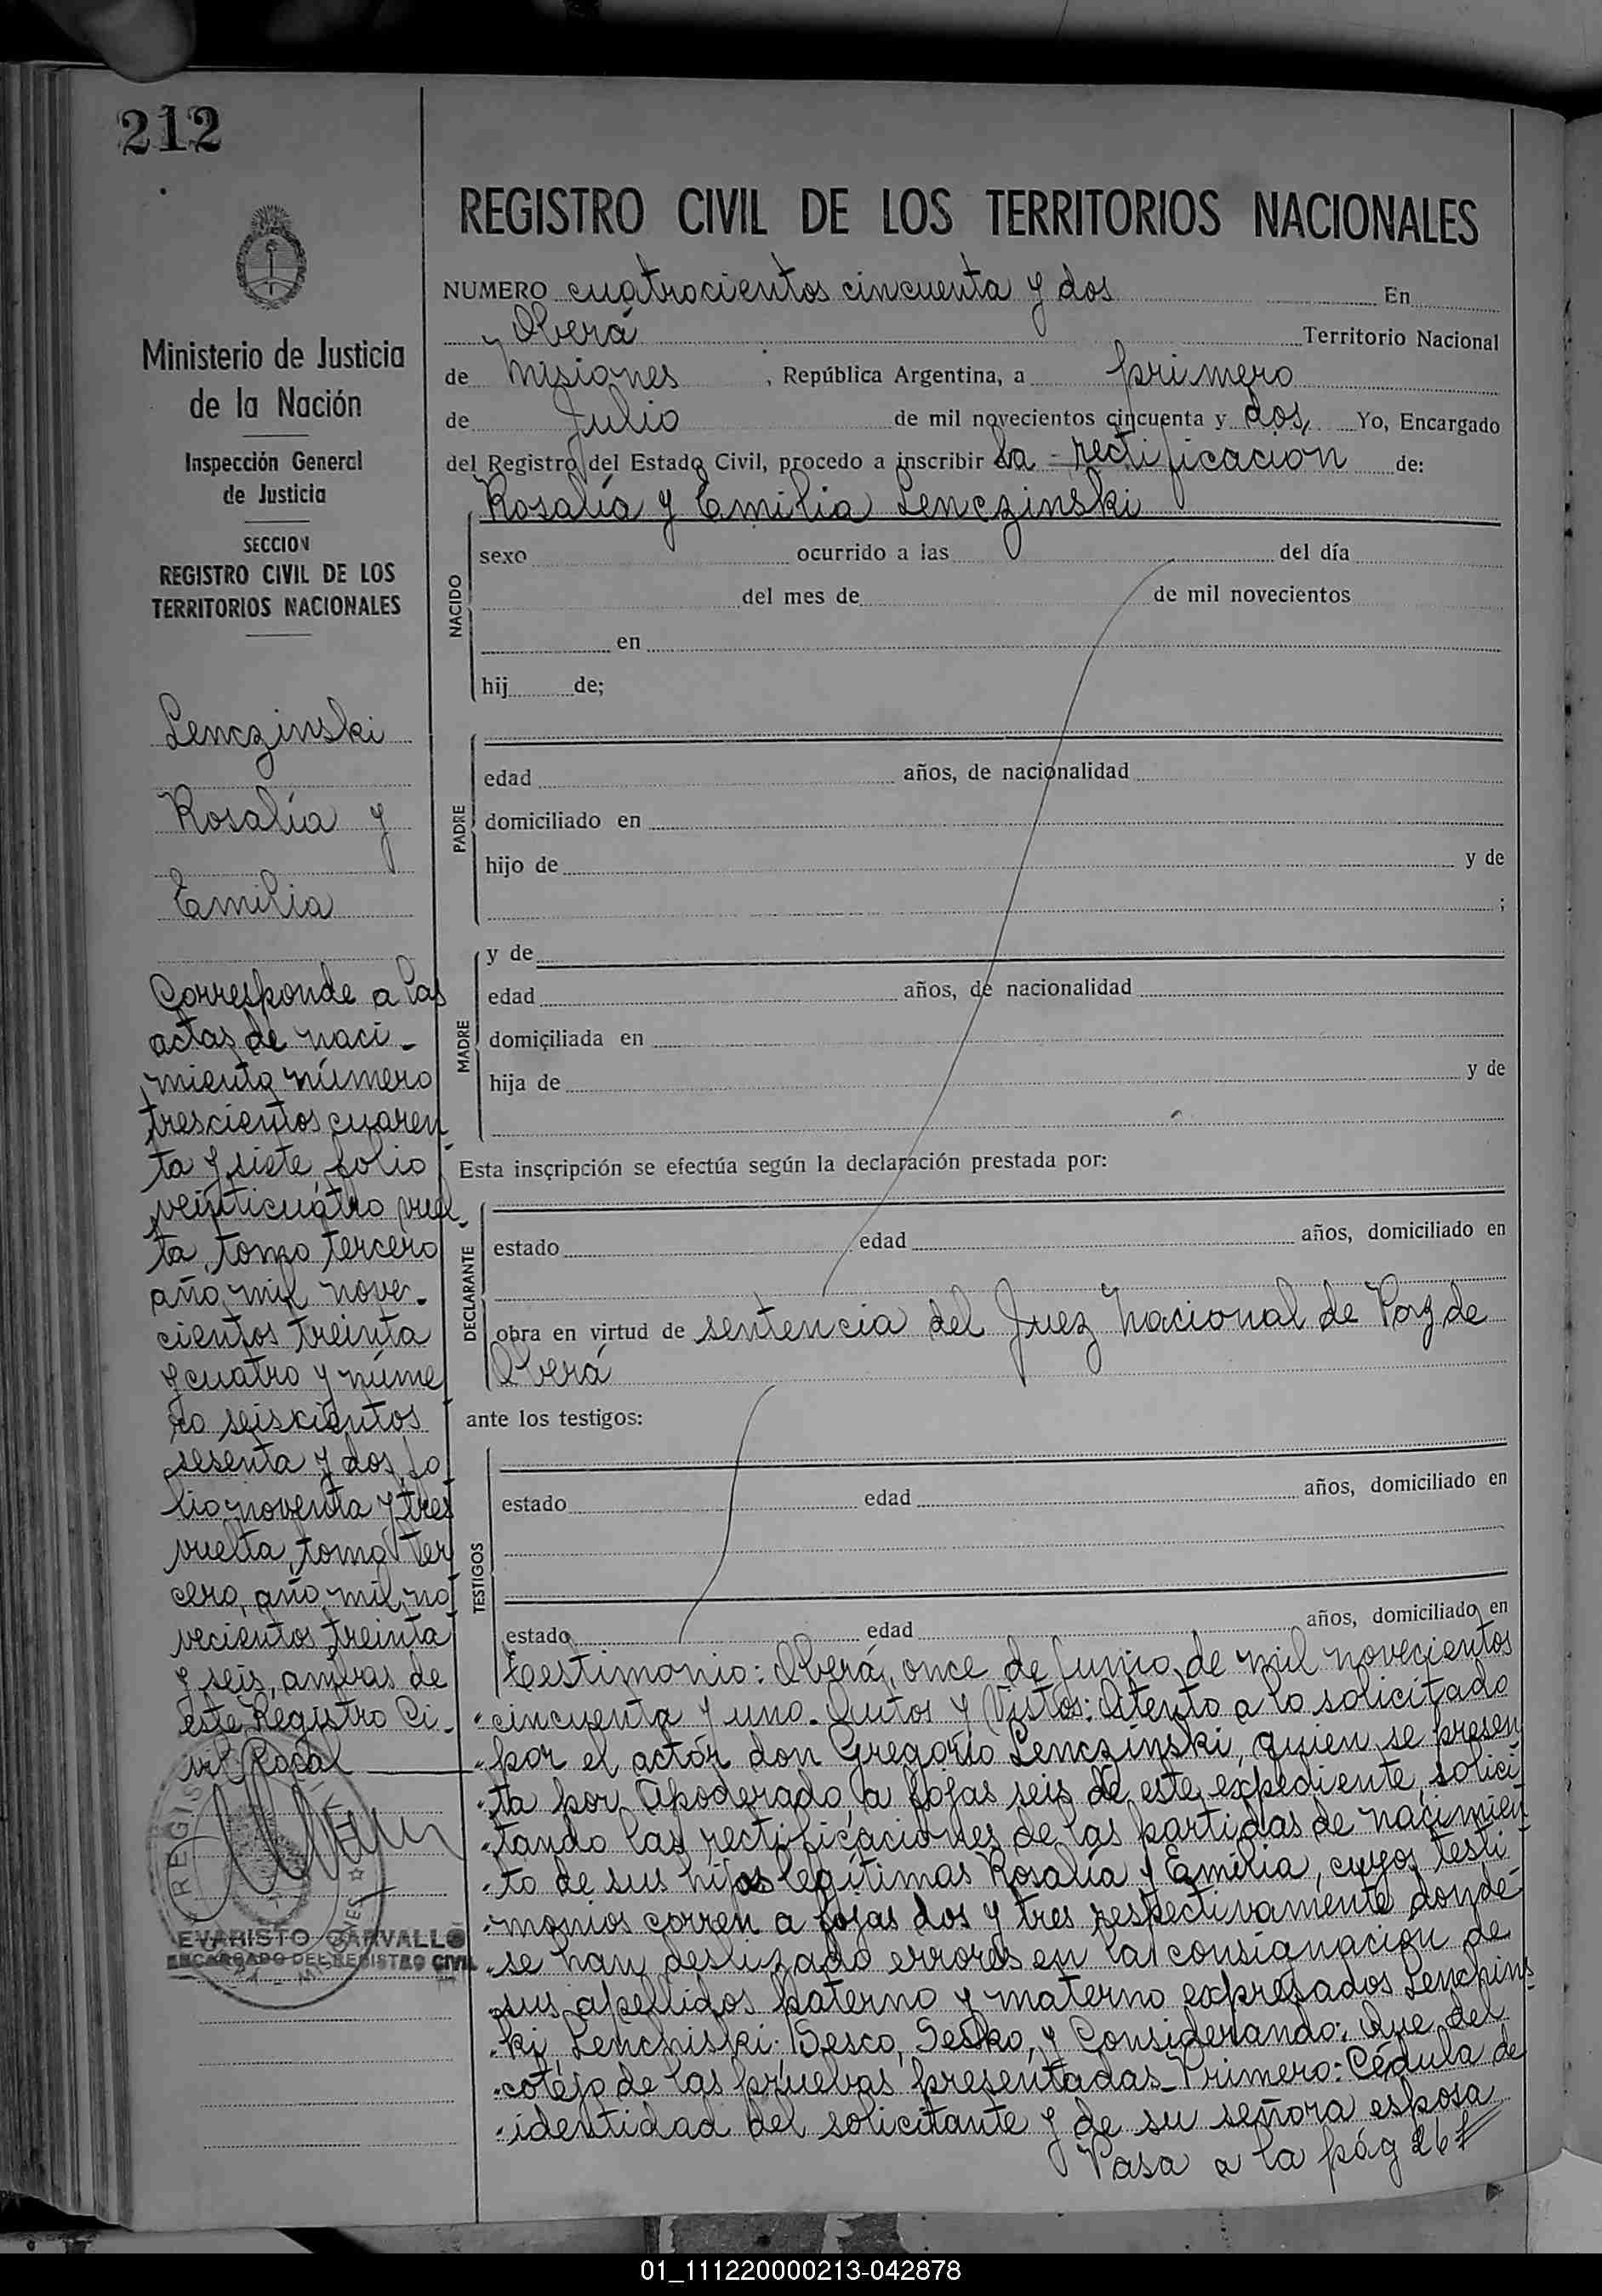 212
REGISTRO CIVIL DE LOS TERRITORIOS NACIONALES
NUMERO cuatrocientos cincuenta y dos En
Oberá Territorio Nacional
de Misiones, República Argentina, a primero
de Julio de mil novecientos cincuenta y dos, Yo, Encargado
del Registro del Estado Civil, procedo a inscribir la rectificacion de:
Rosalía y Emilia Lenczinski
Ministerio de Justicia
de la Nación
Inspección General
de Justicia
SECCION
REGISTRO CIVIL DE LOS
TERRITORIOS NACIONALES
Lenczinski
Rosalía y
Emilia
Corresponde a las
actas de naci-
miento número
trescientos cuaren
ta y siete, folio
veinticuatro vuel-
ta, tomo tercero
año mil nove-
cientos treinta
y cuatro y núme
ro seiscientos
sesenta y dos, fo
lio noventa y tres
vuelta, tomo ter
cero, año mil no
vecientos treinta
y seis, ambas de
este Registro Ci-
vil Local
REGIS CIVIL
MISIONES
EVARISTO CARVALLO
ENCARGADO DEL REGISTRO CIVIL
NACIDO
sexo ocurrido a las del día
del mes de de mil novecientos
en
hij de;
PADRE
edad años, de nacionalidad
domiciliado en
hijo de y de
;
MADRE
y de
edad años, de nacionalidad
domiciliada en
hija de y de
Esta inscripción se efectúa según la declaración prestada por:
DECLARANTE
estado edad años, domiciliado en
obra en virtud de sentencia del Juez Nacional de Paz de
Oberá
ante los testigos:
TESTIGOS
estado edad años, domiciliado en
estado edad años, domiciliado en
Testimonio: Oberá, once de Junio de mil novecientos
"cincuenta y uno. Autos y Vistos: Atento a lo solicitado
"por el actor don Gregorio Lenczinski, quien se presen
"ta por Apoderado, a fojas seis de este expediente, solici
"tando las rectificaciones de las partidas de nacimien
"to de sus hijas legítimas Rosalía y Emilia, cuyos testi
"monios corren a fojas dos y tres respectivamente donde
"se han deslizado errores en la consignacion de
"sus apellidos paterno y materno expresados Lenchins-
"ki, Lenchiski: Sesco, Sesko, y Considerando: Que del
"cotejo de las pruebas presentadas_Primero: Cédula de
"identidad del solicitante y de su señora esposa
Pasa a la pág 26
01_111220000213-042878